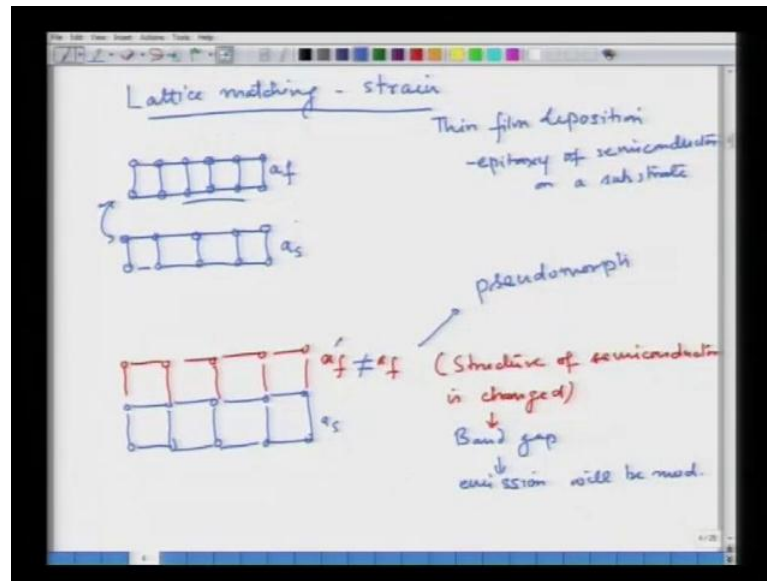 File Edit View Insert Actions Tools Help
Lattice matching - strain
Thin film deposition
-epitaxy of semiconductor
on a substrate
af
as
pseudomorph
af' ≠ af
(Structure of semiconductor
is changed)
as
Band gap
emission will be mod.